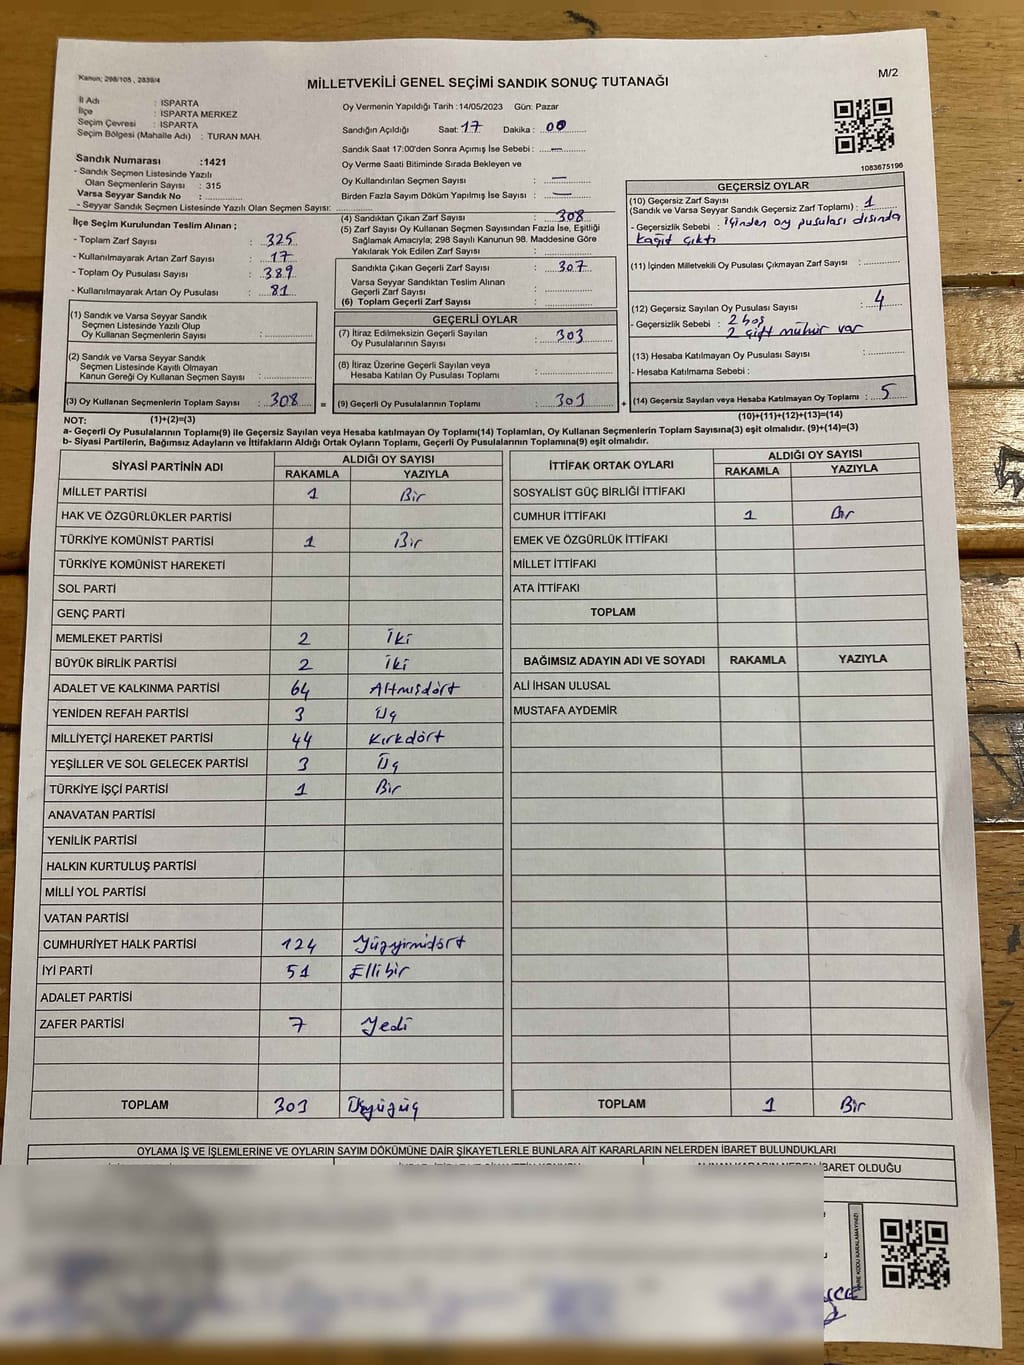 Kanun; 298/105 , 2839/4
MİLLETVEKİLİ GENEL SEÇİMİ SANDIK SONUÇ TUTANAĞI
M/2
İl Adı : ISPARTA
İlçe : ISPARTA MERKEZ
Seçim Çevresi : ISPARTA
Seçim Bölgesi (Mahalle Adı) : TURAN MAH.
Sandık Numarası :1421
- Sandık Seçmen Listesinde Yazılı
Olan Seçmenlerin Sayısı : 315
Varsa Seyyar Sandık No :
- Seyyar Sandık Seçmen Listesinde Yazılı Olan Seçmen Sayısı:
İlçe Seçim Kurulundan Teslim Alınan ;
- Toplam Zarf Sayısı : 325
- Kullanılmayarak Artan Zarf Sayısı : 17
- Toplam Oy Pusulası Sayısı : 389
- Kullanılmayarak Artan Oy Pusulası : 81
(1) Sandık ve Varsa Seyyar Sandık
Seçmen Listesinde Yazılı Olup
Oy Kullanan Seçmenlerin Sayısı :
(2) Sandık ve Varsa Seyyar Sandık
Seçmen Listesinde Kayıtlı Olmayan
Kanun Gereği Oy Kullanan Seçmen Sayısı :
(3) Oy Kullanan Seçmenlerin Toplam Sayısı : 308 =
Oy Vermenin Yapıldığı Tarih : 14/05/2023 Gün: Pazar
Sandığın Açıldığı Saat: 17 Dakika : 00
Sandık Saat 17:00'den Sonra Açımış İse Sebebi : —
Oy Verme Saati Bitiminde Sırada Bekleyen ve
Oy Kullandırılan Seçmen Sayısı : —
Birden Fazla Sayım Döküm Yapılmış İse Sayısı : —
(4) Sandıktan Çıkan Zarf Sayısı : 308
(5) Zarf Sayısı Oy Kullanan Seçmen Sayısından Fazla İse, Eşitliği
Sağlamak Amacıyla; 298 Sayılı Kanunun 98. Maddesine Göre
Yakılarak Yok Edilen Zarf Sayısı :
Sandıkta Çıkan Geçerli Zarf Sayısı : 307
Varsa Seyyar Sandıktan Teslim Alınan
Geçerli Zarf Sayısı :
(6) Toplam Geçerli Zarf Sayısı :
GEÇERLİ OYLAR
(7) İtiraz Edilmeksizin Geçerli Sayılan
Oy Pusulalarının Sayısı : 303
(8) İtiraz Üzerine Geçerli Sayılan veya
Hesaba Katılan Oy Pusulası Toplamı :
(9) Geçerli Oy Pusulalarının Toplamı : 303 +
1083675196
GEÇERSİZ OYLAR
(10) Geçersiz Zarf Sayısı
(Sandık ve Varsa Seyyar Sandık Geçersiz Zarf Toplamı) : 1
- Geçersizlik Sebebi : İçinden oy pusulası dışında
kağıt çıktı
(11) İçinden Milletvekili Oy Pusulası Çıkmayan Zarf Sayısı :
(12) Geçersiz Sayılan Oy Pusulası Sayısı : 4
- Geçersizlik Sebebi : 2 boş
2 çift mühür var
(13) Hesaba Katılmayan Oy Pusulası Sayısı :
- Hesaba Katılmama Sebebi :
(14) Geçersiz Sayılan veya Hesaba Katılmayan Oy Toplamı : 5
NOT: (1)+(2)=(3) (10)+(11)+(12)+(13)=(14)
a- Geçerli Oy Pusulalarının Toplamı(9) ile Geçersiz Sayılan veya Hesaba katılmayan Oy Toplamı(14) Toplamları, Oy Kullanan Seçmenlerin Toplam Sayısına(3) eşit olmalıdır. (9)+(14)=(3)
b- Siyasi Partilerin, Bağımsız Adayların ve İttifakların Aldığı Ortak Oyların Toplamı, Geçerli Oy Pusulalarının Toplamına(9) eşit olmalıdır.
SİYASİ PARTİNİN ADI ALDIĞI OY SAYISI
RAKAMLA YAZIYLA
MİLLET PARTİSİ 1 Bir
HAK VE ÖZGÜRLÜKLER PARTİSİ
TÜRKİYE KOMÜNİST PARTİSİ 1 Bir
TÜRKİYE KOMÜNİST HAREKETİ
SOL PARTİ
GENÇ PARTİ
MEMLEKET PARTİSİ 2 İki
BÜYÜK BİRLİK PARTİSİ 2 İki
ADALET VE KALKINMA PARTİSİ 64 Altmışdört
YENİDEN REFAH PARTİSİ 3 Üç
MİLLİYETÇİ HAREKET PARTİSİ 44 Kırkdört
YEŞİLLER VE SOL GELECEK PARTİSİ 3 Üç
TÜRKİYE İŞÇİ PARTİSİ 1 Bir
ANAVATAN PARTİSİ
YENİLİK PARTİSİ
HALKIN KURTULUŞ PARTİSİ
MİLLİ YOL PARTİSİ
VATAN PARTİSİ
CUMHURİYET HALK PARTİSİ 124 Yüzyirmidört
İYİ PARTİ 51 Ellibir
ADALET PARTİSİ
ZAFER PARTİSİ 7 Yedi
TOPLAM 303 Üçyüzüç
İTTİFAK ORTAK OYLARI ALDIĞI OY SAYISI
RAKAMLA YAZIYLA
SOSYALİST GÜÇ BİRLİĞİ İTTİFAKI
CUMHUR İTTİFAKI 1 Bir
EMEK VE ÖZGÜRLÜK İTTİFAKI
MİLLET İTTİFAKI
ATA İTTİFAKI
TOPLAM
BAĞIMSIZ ADAYIN ADI VE SOYADI RAKAMLA YAZIYLA
ALİ İHSAN ULUSAL
MUSTAFA AYDEMİR
TOPLAM 1 Bir
OYLAMA İŞ VE İŞLEMLERİNE VE OYLARIN SAYIM DÖKÜMÜNE DAİR ŞİKAYETLERLE BUNLARA AİT KARARLARIN NELERDEN İBARET BULUNDUKLARI
ALINAN KARARIN NEDEN İBARET OLDUĞU